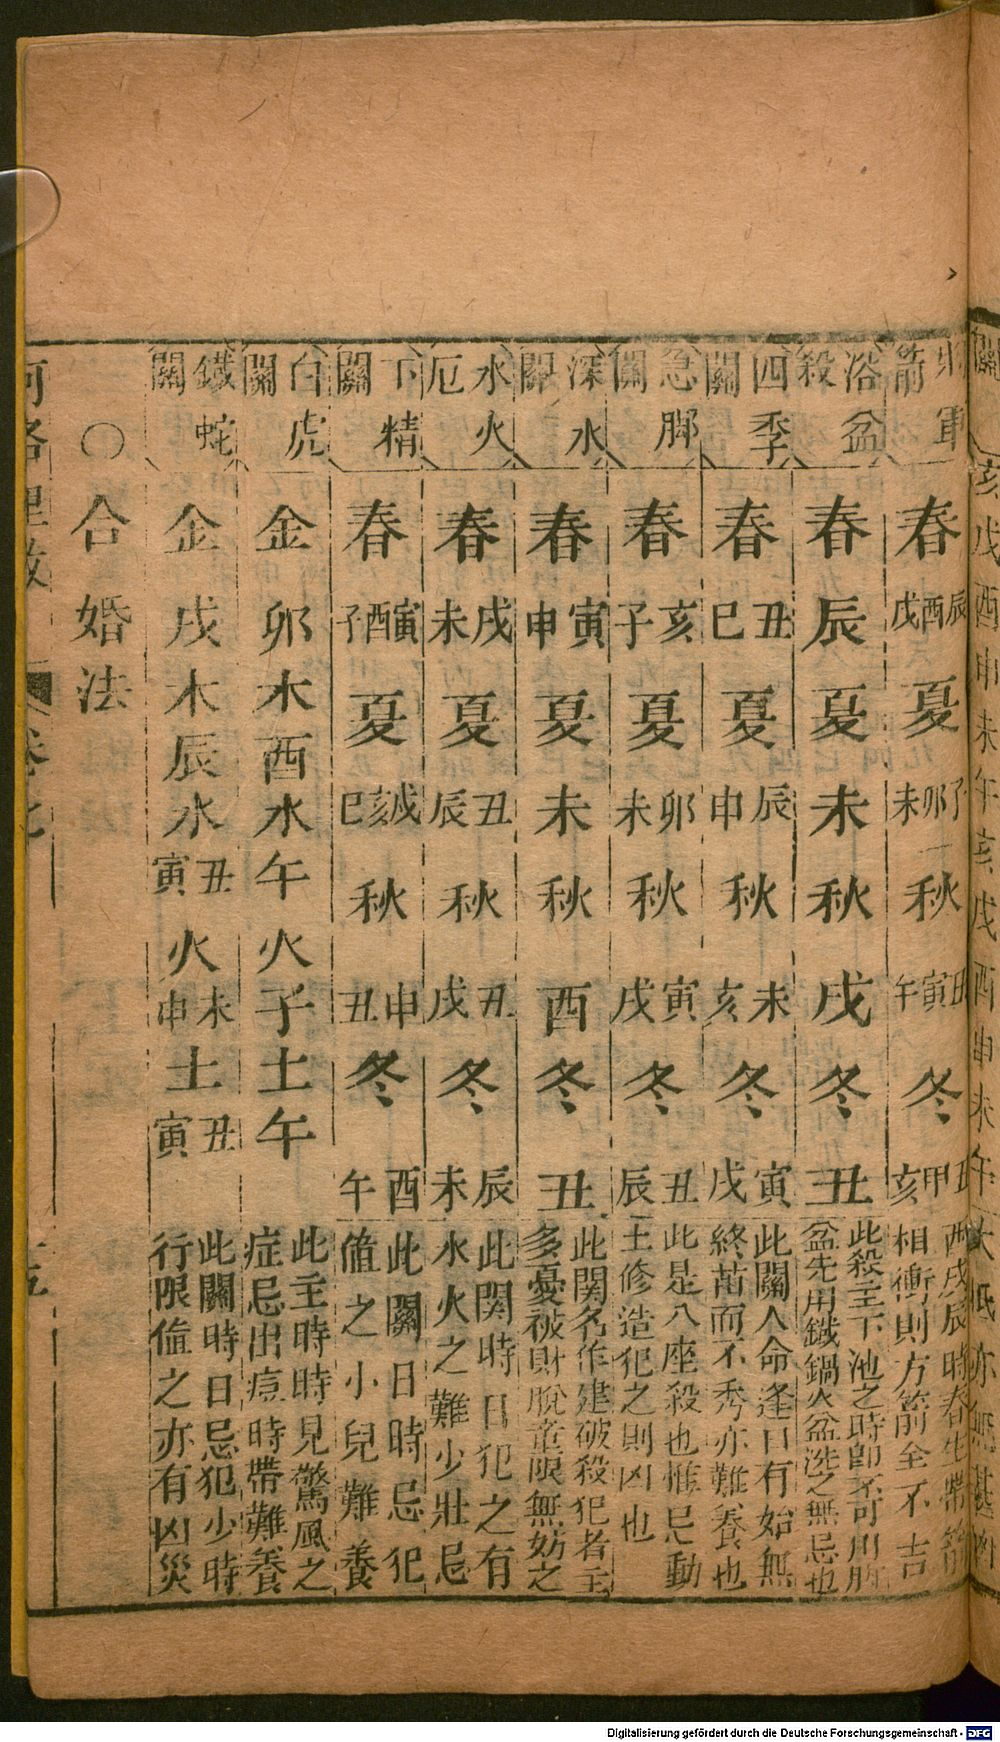 將軍箭 春 辰酉戌 夏 子卯未 秋 丑寅午 冬 丑申亥 酉戌辰時春生帶箭相衝則方箭全不吉
浴盆殺 春 辰 夏 未 秋 戌 冬 丑 此殺主下池之時即不可用脚盆先用鐵鍋火盆洗之無忌也
四季關 春 丑巳 夏 辰申 秋 未亥 冬 寅戌 此關人命逢日有始無終苗而不秀亦難養也
急脚關 春 亥子 夏 卯未 秋 寅戌 冬 丑辰 此是八座殺也惟忌動土修造犯之則凶也
深水關 春 寅申 夏 未 秋 酉 冬 丑 此関名作建破殺犯者主多憂被財脫童限無妨之
水火厄 春 戌未 夏 丑辰 秋 丑戌 冬 辰未 此関時日犯之有水火之難少壯忌
下精關 春 寅酉子 夏 戌亥巳 秋 申丑 冬 酉午 此關日時忌犯值之小兒難養
白虎關 金 卯 木 酉 水 午 火 子 土 午 此主時時見驚風之症忌出痘時帶難養
鐵蛇關 金 戌 木 辰 水 丑寅 火 未申 土 丑寅 此關時日忌犯少時行限值之亦有凶災
○合婚法
Digitalisierung gefördert durch die Deutsche Forschungsgemeinschaft - DFG